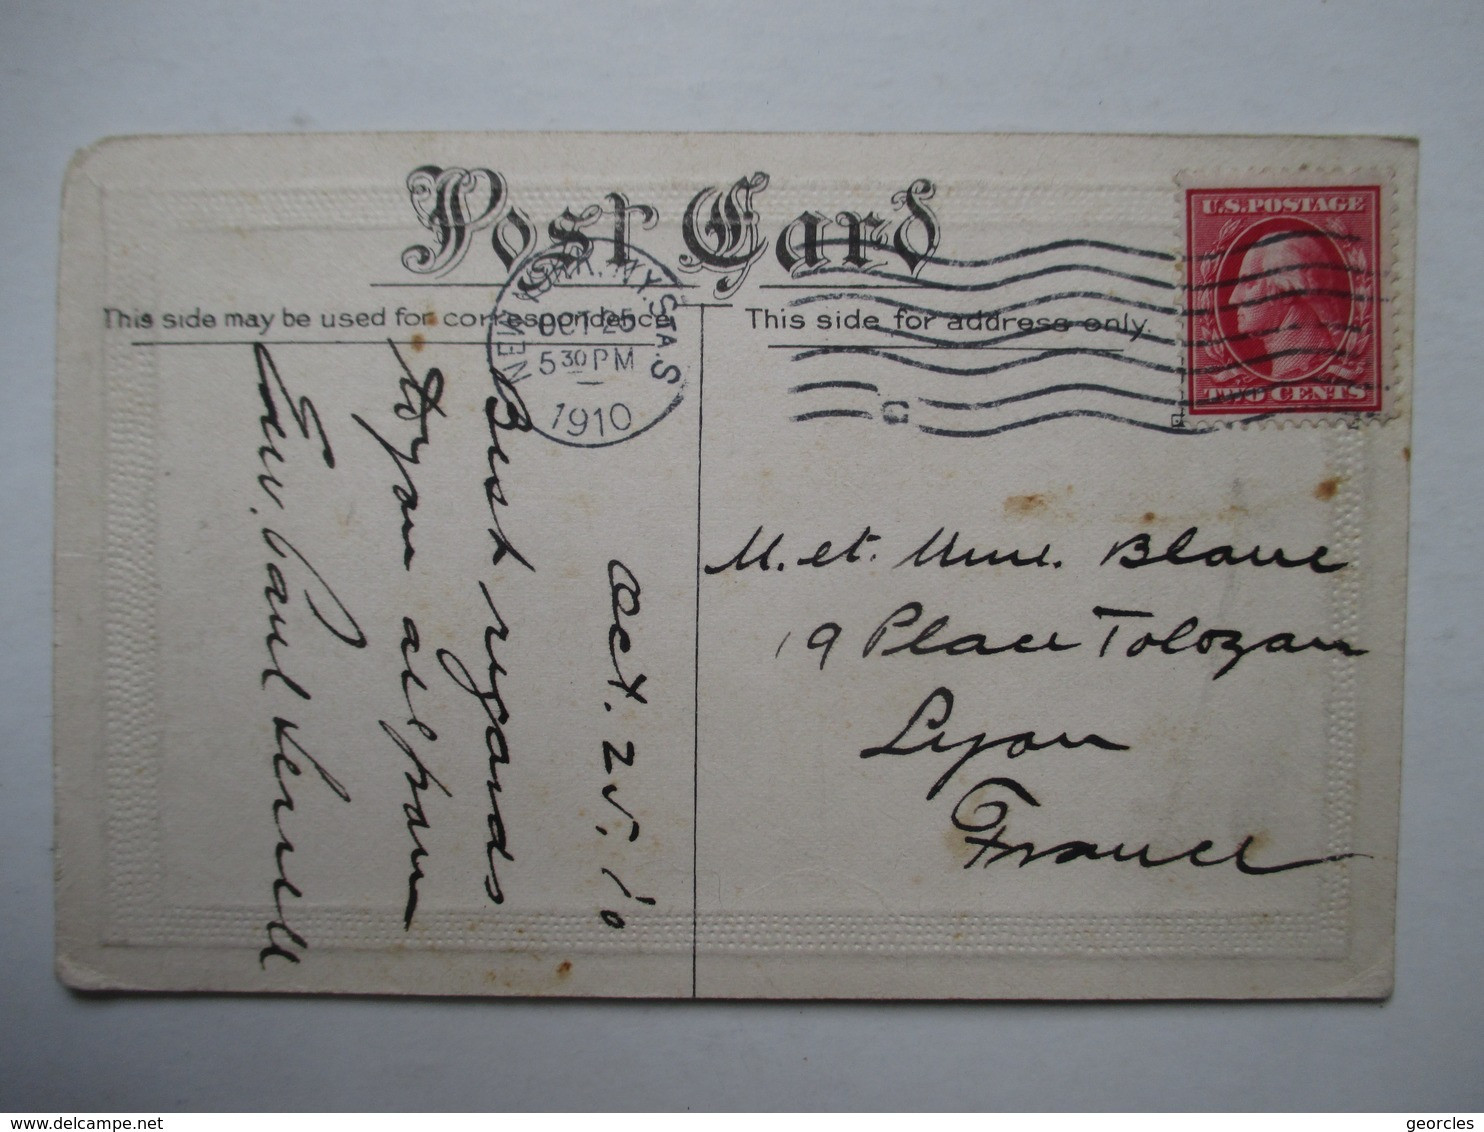 Post Card
This side may be used for correspondence
This side for address only.
NEW YORK, N.Y. STA. S
OCT 25
5 30 PM
1910
C
U.S. POSTAGE
TWO CENTS
Oct. 25. '10
Best regards
to you all from
Edw. Paul
M. et. Mme. Blanc
19 Place Tolozan
Lyon
France
delcampe.net
georcles